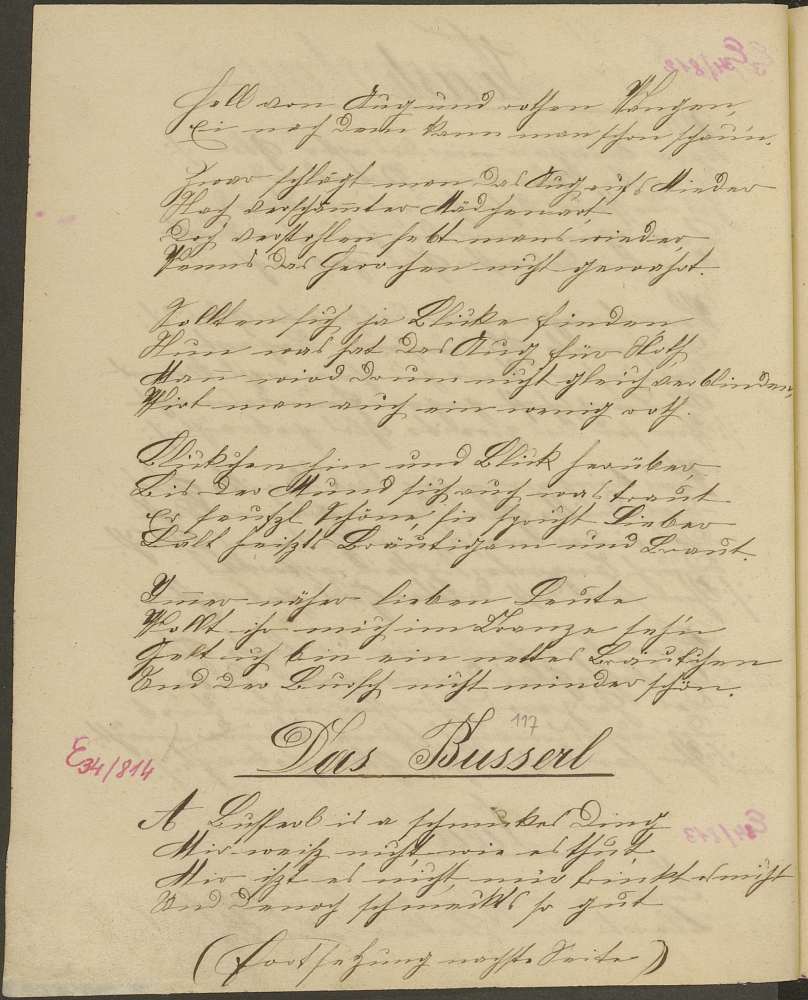 Hell von Aug und rothen Wangen,
Ei nach dem kann man schon schau'n.
Zwar schlägt man das Aug aufs Mieder
Nach verschämter Mädchenart,
Doch verstohlen hebt mans wieder,
Wenns das Herrchen nicht gewahrt.
Sollten sich ja Blicke finden
Nun was hat das Aug für Noth
Man wird drum nicht gleich verblinden,
Wirt man auch ein wenig roth.
Blickchen hin und Blick herüber,
Bis der Mund sich auch was traut
Er seufzt Schöne, sie spricht Lieber
Bald heißts Bräutigam und Braut.
Immer näher lieben Leute
Wollt ihr mich im Kranze seh'n
Gelt ich bin ein nettes Bräutchen
Und der Bursch nicht minder schön.
117
Das Busserl
E34/814
A Busserl is a schmuckes Ding
Mir weiß nicht wie es thut
Mir ißt es nicht, mir trinkt es nicht
Und denoch schmeckts so gut
(Fortsetzung nächste Seite)